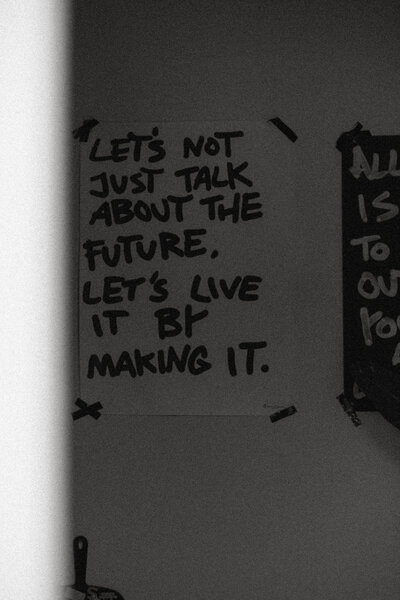 LET'S NOT
JUST TALK
ABOUT THE
FUTURE.
LET'S LIVE
IT BY
MAKING IT.
ALL
IS
TO